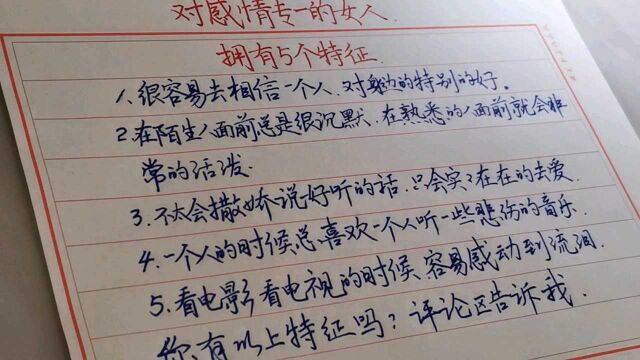 对感情专一的女人
拥有5个特征
1、很容易去相信一个人、对身边的特别的好。
2、在陌生人面前总是很沉默、在熟悉的人面前就会非
常的活泼.
3、不太会撒娇说好听的话、只会实实在在的去爱.
4、一个人的时候总喜欢一个人听一些悲伤的音乐.
5、看电影看电视的时候、容易感动到流泪.
你有以上特征吗？评论区告诉我.